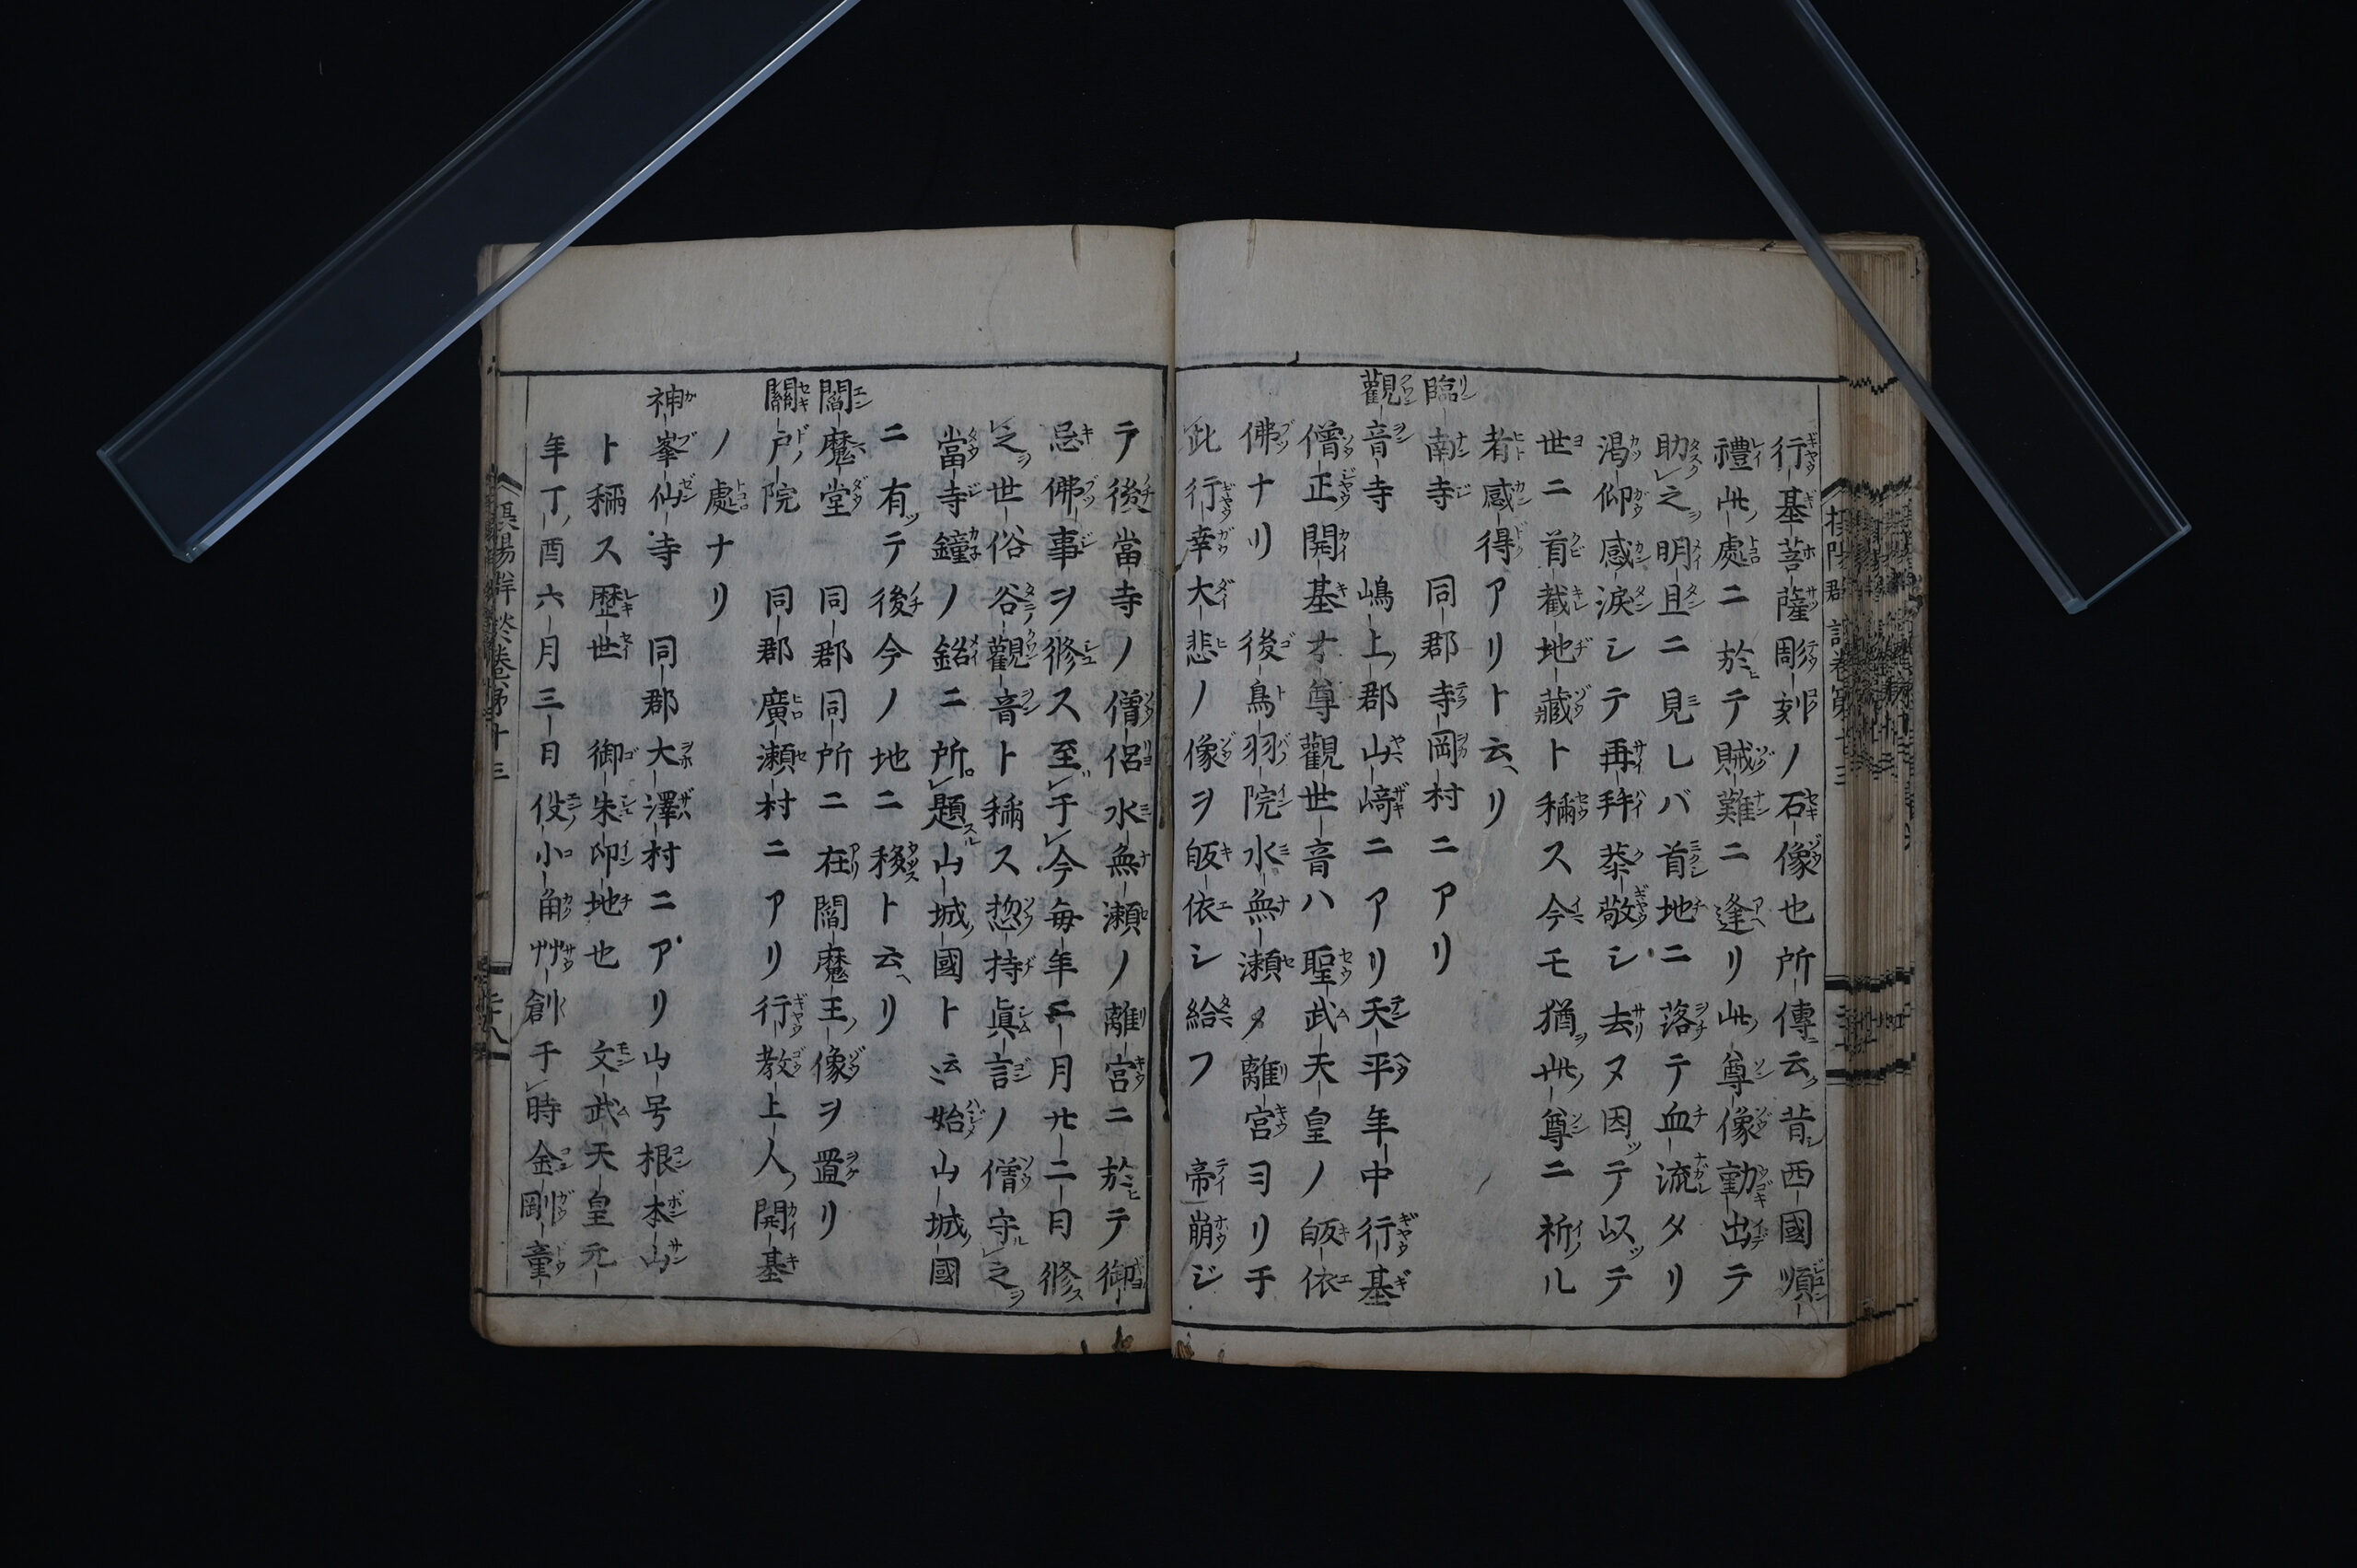 行基菩薩彫刻ノ石像也所傳云昔西國順
禮此處ニ於テ賊難ニ逢リ此尊像動出テ
助之明旦ニ見レバ首地ニ落テ血流タリ
渇仰感涙シテ再拝恭敬シ去ヌ因テ以テ
世ニ首截地藏ト稱ス今モ猶此尊ニ祈ル
者感得アリト云リ
臨南寺 同郡寺岡村ニアリ
觀音寺 嶋上郡山﨑ニアリ天平年中行基
僧正開基本尊觀世音ハ聖武天皇ノ皈依
佛ナリ 後鳥羽院水無瀬ノ離宮ヨリ于
此行幸大悲ノ像ヲ皈依シ給フ 帝崩ジ
テ後當寺ノ僧侶水無瀬ノ離宮ニ於テ御
忌佛事ヲ修ス至于今毎年二月廿二日修
之世俗谷觀音ト稱ス惣持眞言ノ僧守之
當寺鐘ノ銘ニ所題山城國ト云云始山城國
ニ有テ後今ノ地ニ移ト云リ
閻魔堂 同郡同所ニ在閻魔王ノ像ヲ置リ
關戸院 同郡廣瀬村ニアリ行教上人開基
ノ處ナリ
神峯仙寺 同郡大澤村ニアリ山号根本山
ト稱ス歴世 御朱印地也 文武天皇元
年丁酉六月三日役小角艸創于時金剛童
摂陽群談巻第十三 二十八